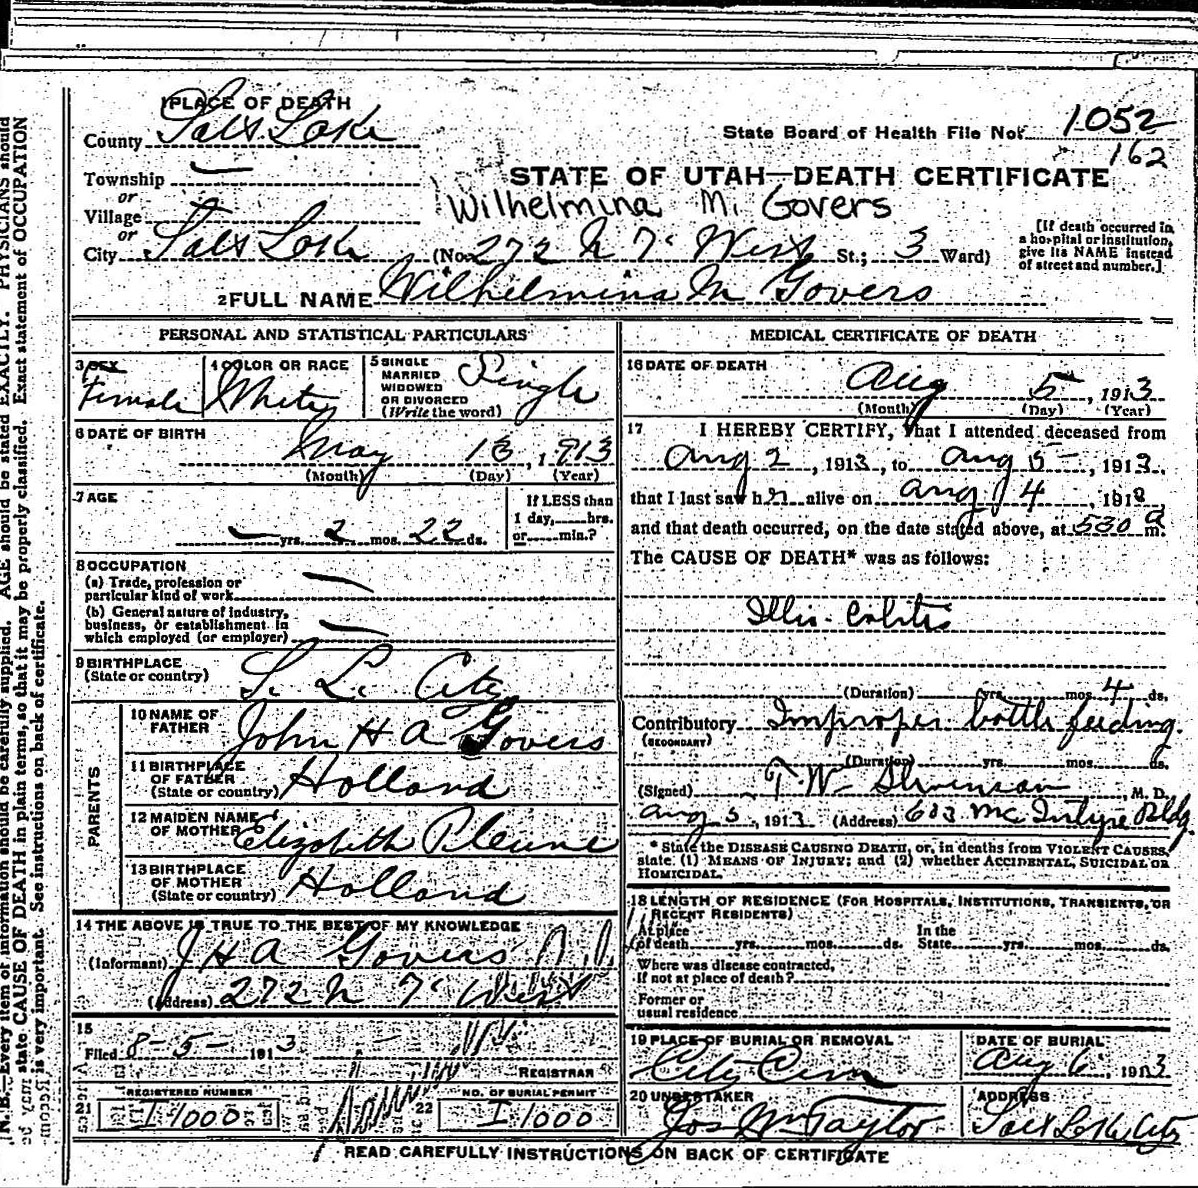 1 PLACE OF DEATH
County Salt Lake
State Board of Health File No. 1052
162
Township —
or
STATE OF UTAH—DEATH CERTIFICATE
Village
Wilhelmina M. Govers
or
City Salt Lake (No. 272 N 7" West St.; 3 Ward)
[If death occurred in a hospital or institution, give its NAME instead of street and number.]
2 FULL NAME Wilhelmina M Govers
PERSONAL AND STATISTICAL PARTICULARS
3 SEX Female
4 COLOR OR RACE White
5 SINGLE MARRIED WIDOWED OR DIVORCED (Write the word) Single
6 DATE OF BIRTH
May 13, 1913
(Month) (Day) (Year)
7 AGE
— yrs. 2 mos. 22 ds.
If LESS than 1 day, hrs. or min.?
8 OCCUPATION
(a) Trade, profession or particular kind of work —
(b) General nature of industry, business, or establishment in which employed (or employer) —
9 BIRTHPLACE (State or country) S. L. City
PARENTS
10 NAME OF FATHER John H A Govers
11 BIRTHPLACE OF FATHER (State or country) Holland
12 MAIDEN NAME OF MOTHER Elizabeth Pleune
13 BIRTHPLACE OF MOTHER (State or country) Holland
14 THE ABOVE IS TRUE TO THE BEST OF MY KNOWLEDGE
(Informant) J H A Govers
(Address) 272 N 7" West
15
Filed 8-5-1913
REGISTRAR
21 REGISTERED NUMBER I 1000
22 NO. OF BURIAL PERMIT I 1000
MEDICAL CERTIFICATE OF DEATH
16 DATE OF DEATH
Aug 5, 1913
(Month) (Day) (Year)
17 I HEREBY CERTIFY, That I attended deceased from
Aug 2, 1913, to Aug 5, 1913,
that I last saw her alive on Aug 4, 1913
and that death occurred, on the date stated above, at 530 a m.
The CAUSE OF DEATH* was as follows:
Illio-Colitis
(Duration) yrs. mos. 4 ds.
Contributory (SECONDARY) Improper bottle feeding.
(Duration) yrs. mos. ds.
(Signed) T W Stevenson, M. D.
Aug 5, 1913 (Address) 603 McIntyre Bldg
* State the DISEASE CAUSING DEATH, or, in deaths from VIOLENT CAUSES, state (1) MEANS OF INJURY; and (2) whether ACCIDENTAL, SUICIDAL OR HOMICIDAL.
18 LENGTH OF RESIDENCE (FOR HOSPITALS, INSTITUTIONS, TRANSIENTS, OR RECENT RESIDENTS)
At place of death yrs. mos. ds. In the State yrs. mos. ds.
Where was disease contracted, if not at place of death?
Former or usual residence
19 PLACE OF BURIAL OR REMOVAL City Cem
DATE OF BURIAL Aug 6, 1913
20 UNDERTAKER Jos Wm Taylor
ADDRESS Salt Lake City
READ CAREFULLY INSTRUCTIONS ON BACK OF CERTIFICATE
N. B.—Every item of information should be carefully supplied. AGE should be stated EXACTLY. PHYSICIANS should
state CAUSE OF DEATH in plain terms, so that it may be properly classified. Exact statement of OCCUPATION
is very important. See instructions on back of certificate.